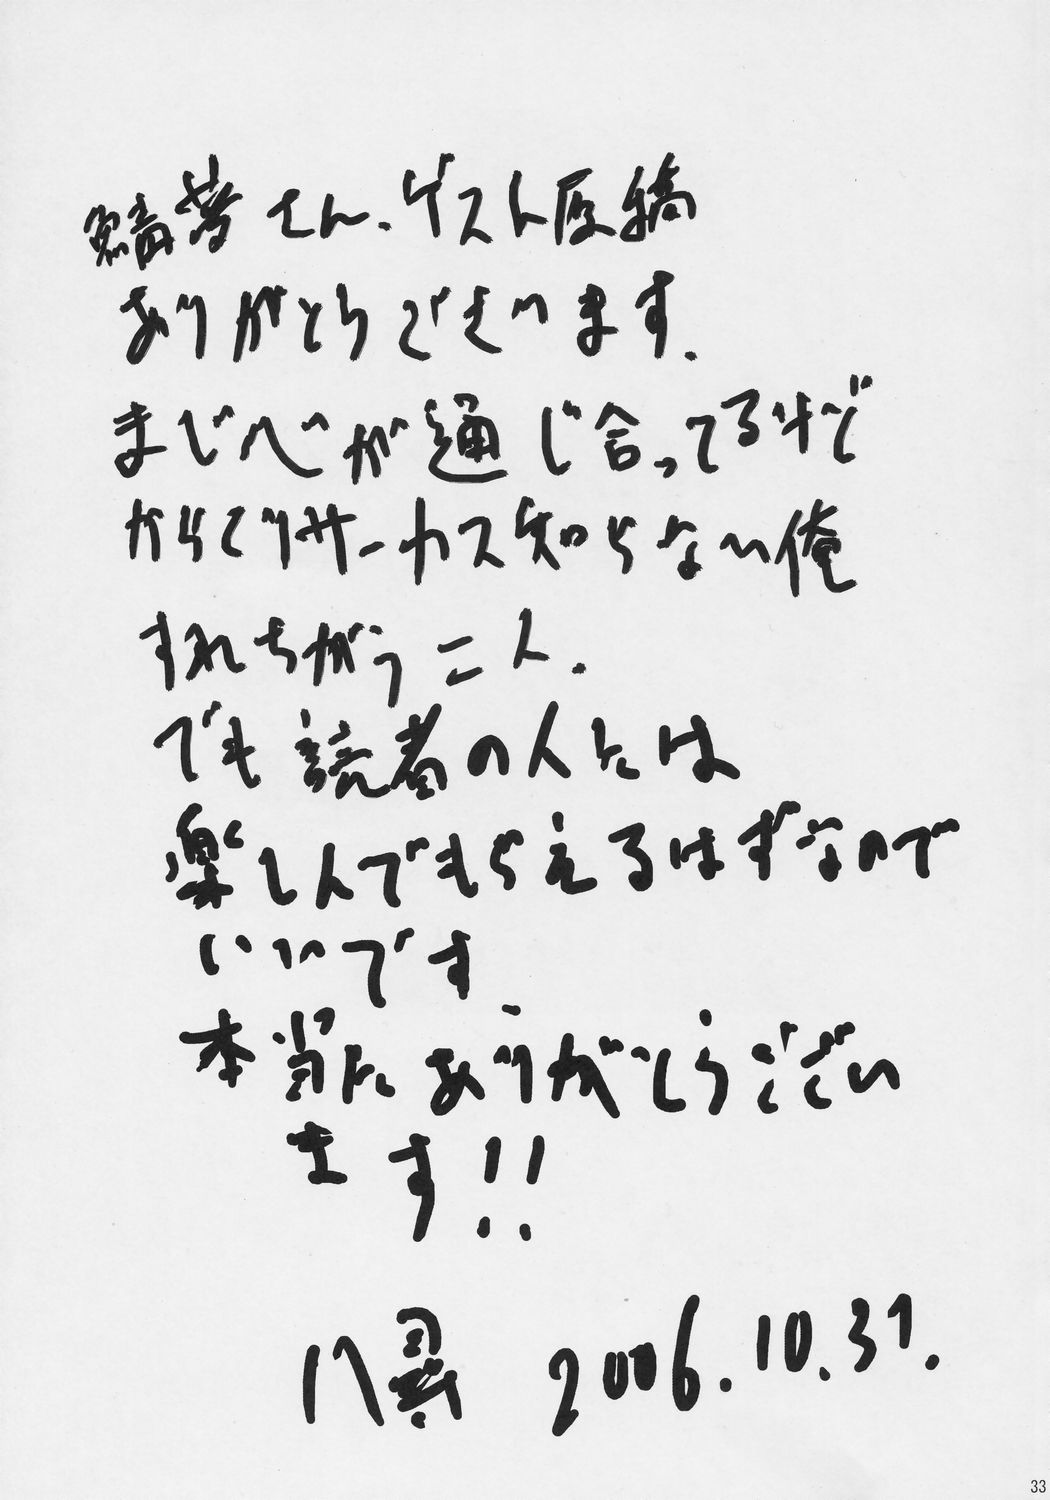 さん、ゲスト原稿
ありがとうございます.
まじ心が通じ合ってるけど
からくりサーカス知らない俺
すれちがう二人.
でも読者の人たは
楽しんでもらえるはずなので
いいです.
本当にありがとうござい
ます!!
八尋 2006.10.31.
33